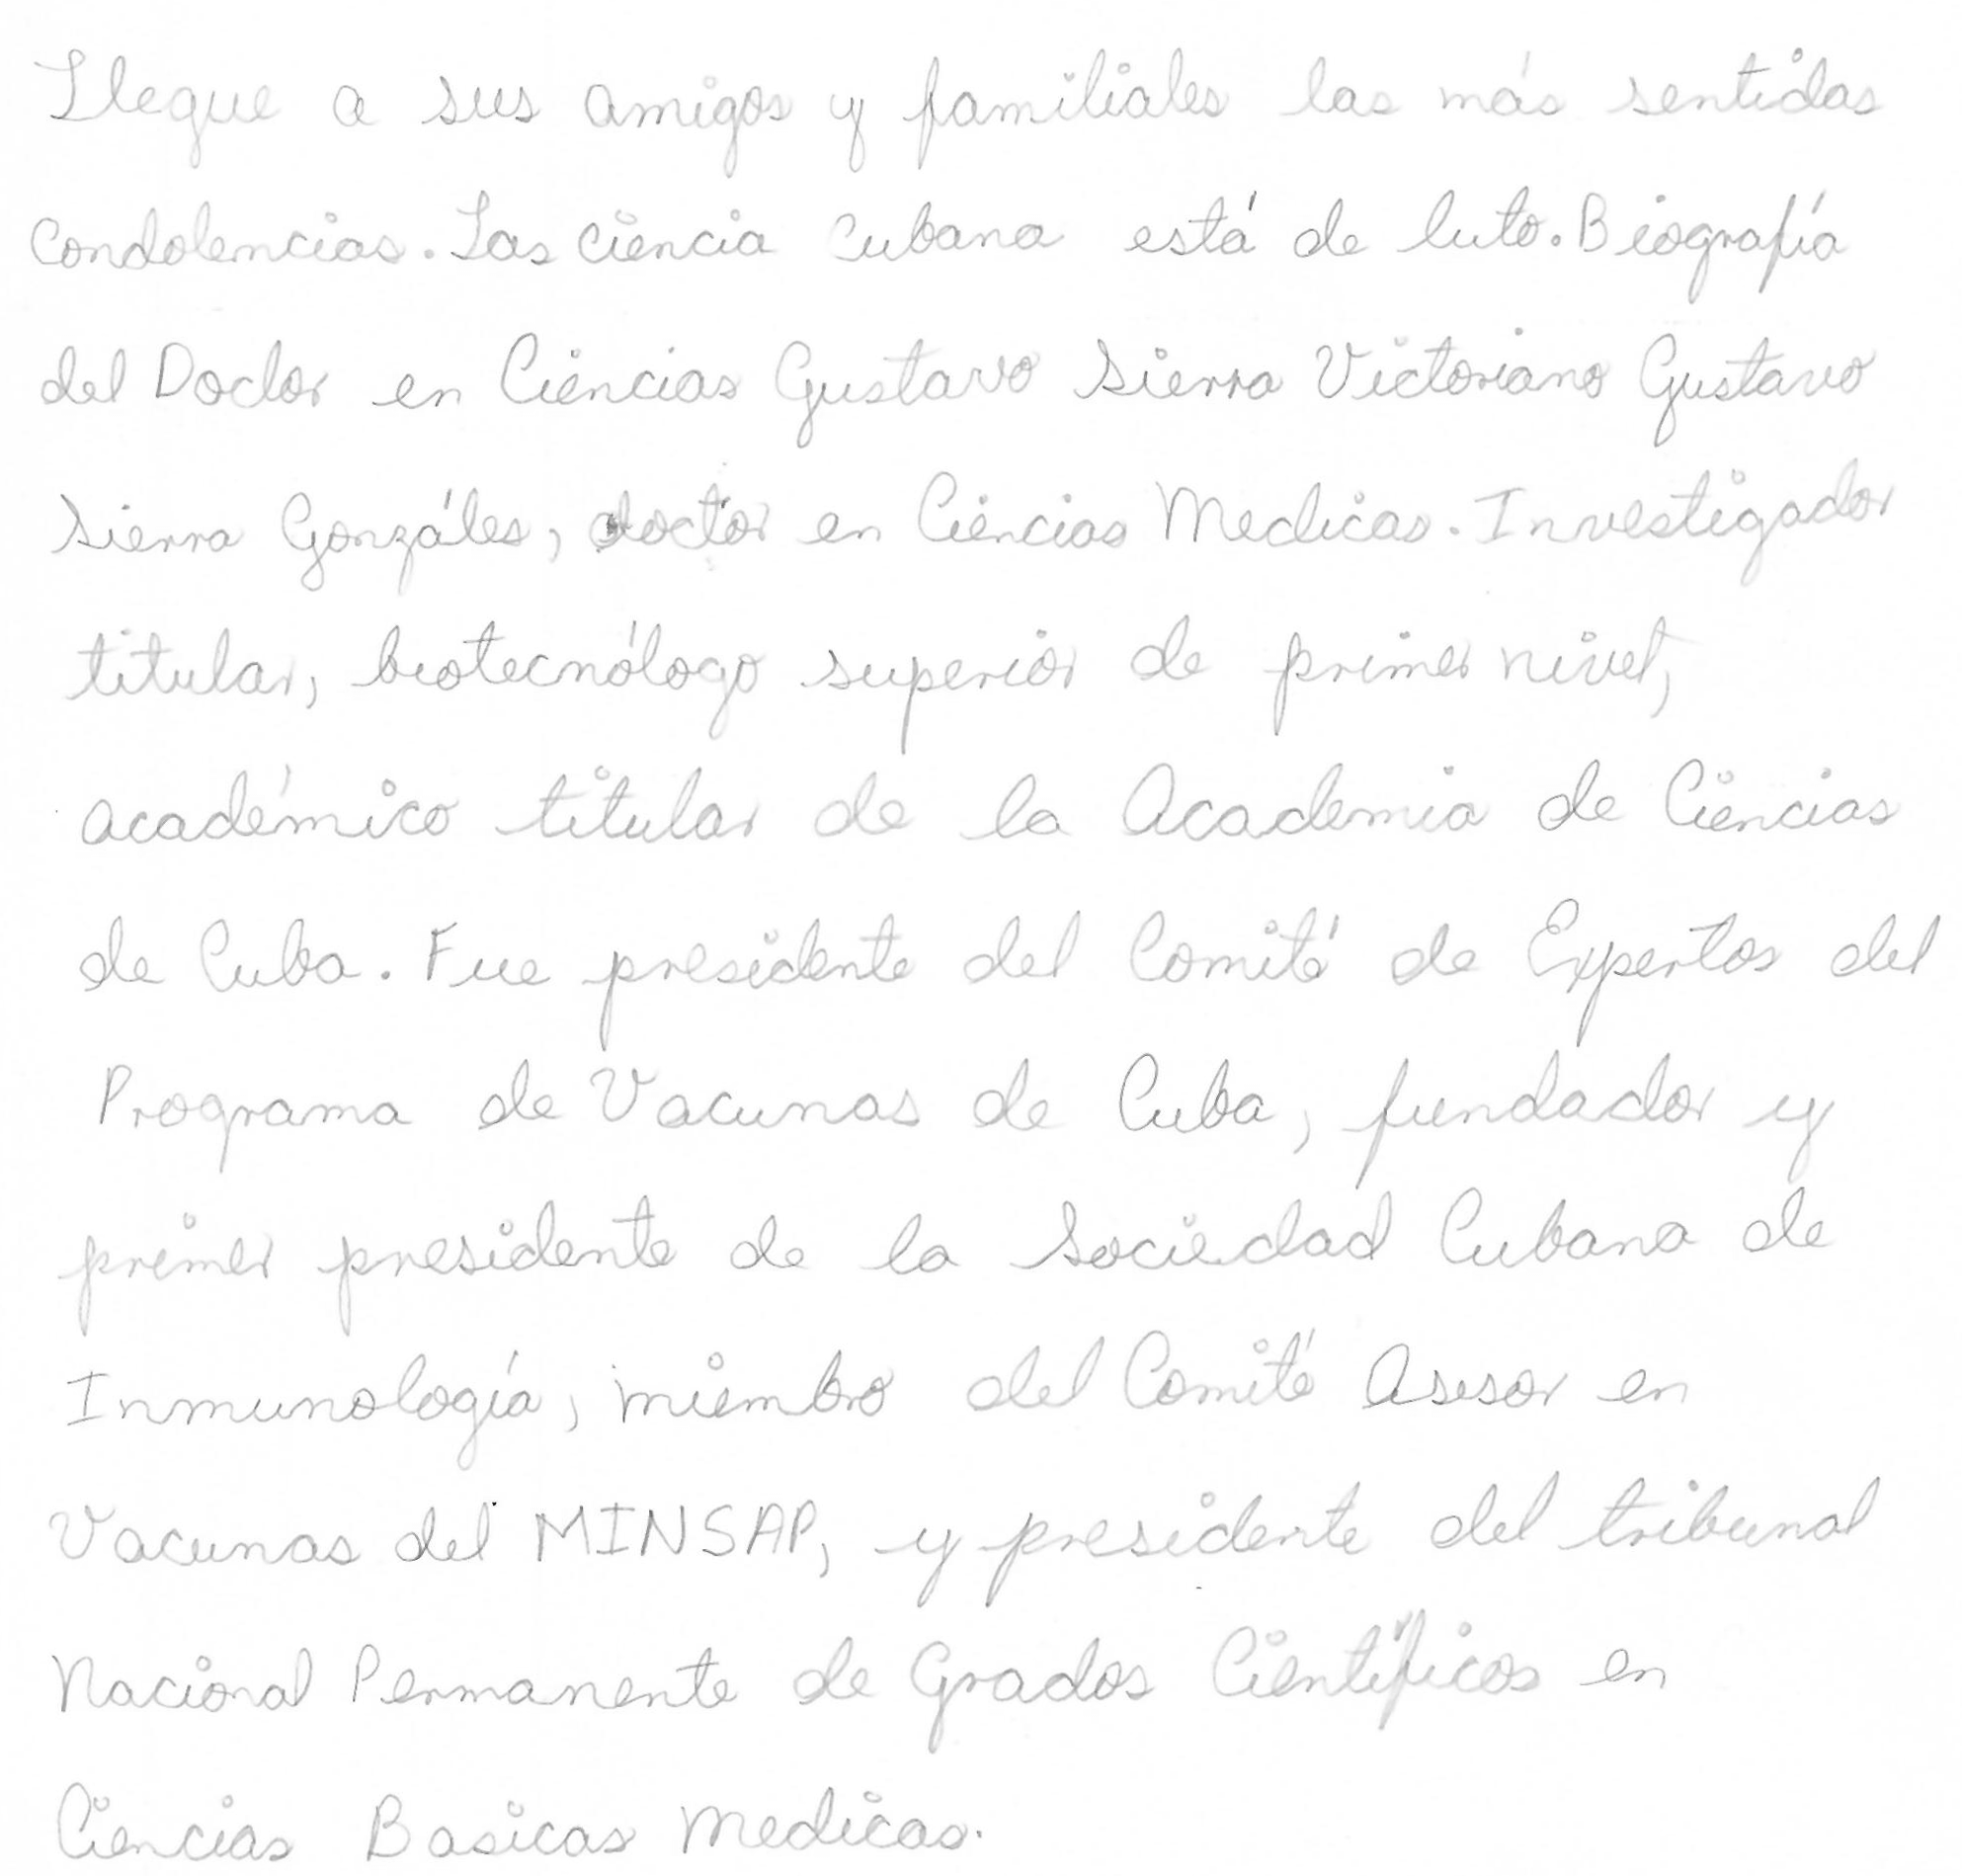 Llegue a sus amigos y familiales las más sentidas
condolencias. Las ciencia cubana está de luto. Biografía
del Doctor en Ciencias Gustavo Sierra Victoriano Gustavo
Sierra Gonzáles, doctor en Ciencias Medicas. Investigador
titular, biotecnólogo superior de primer nivel,
académico titular de la Academia de Ciencias
de Cuba. Fue presidente del Comité de Expertos del
Programa de Vacunas de Cuba, fundador y
primer presidente de la Sociedad Cubana de
Inmunología, miembro del Comité Asesor en
Vacunas del MINSAP, y presidente del tribunal
Nacional Permanente de Grados Científicos en
Ciencias Basicas Medicas.